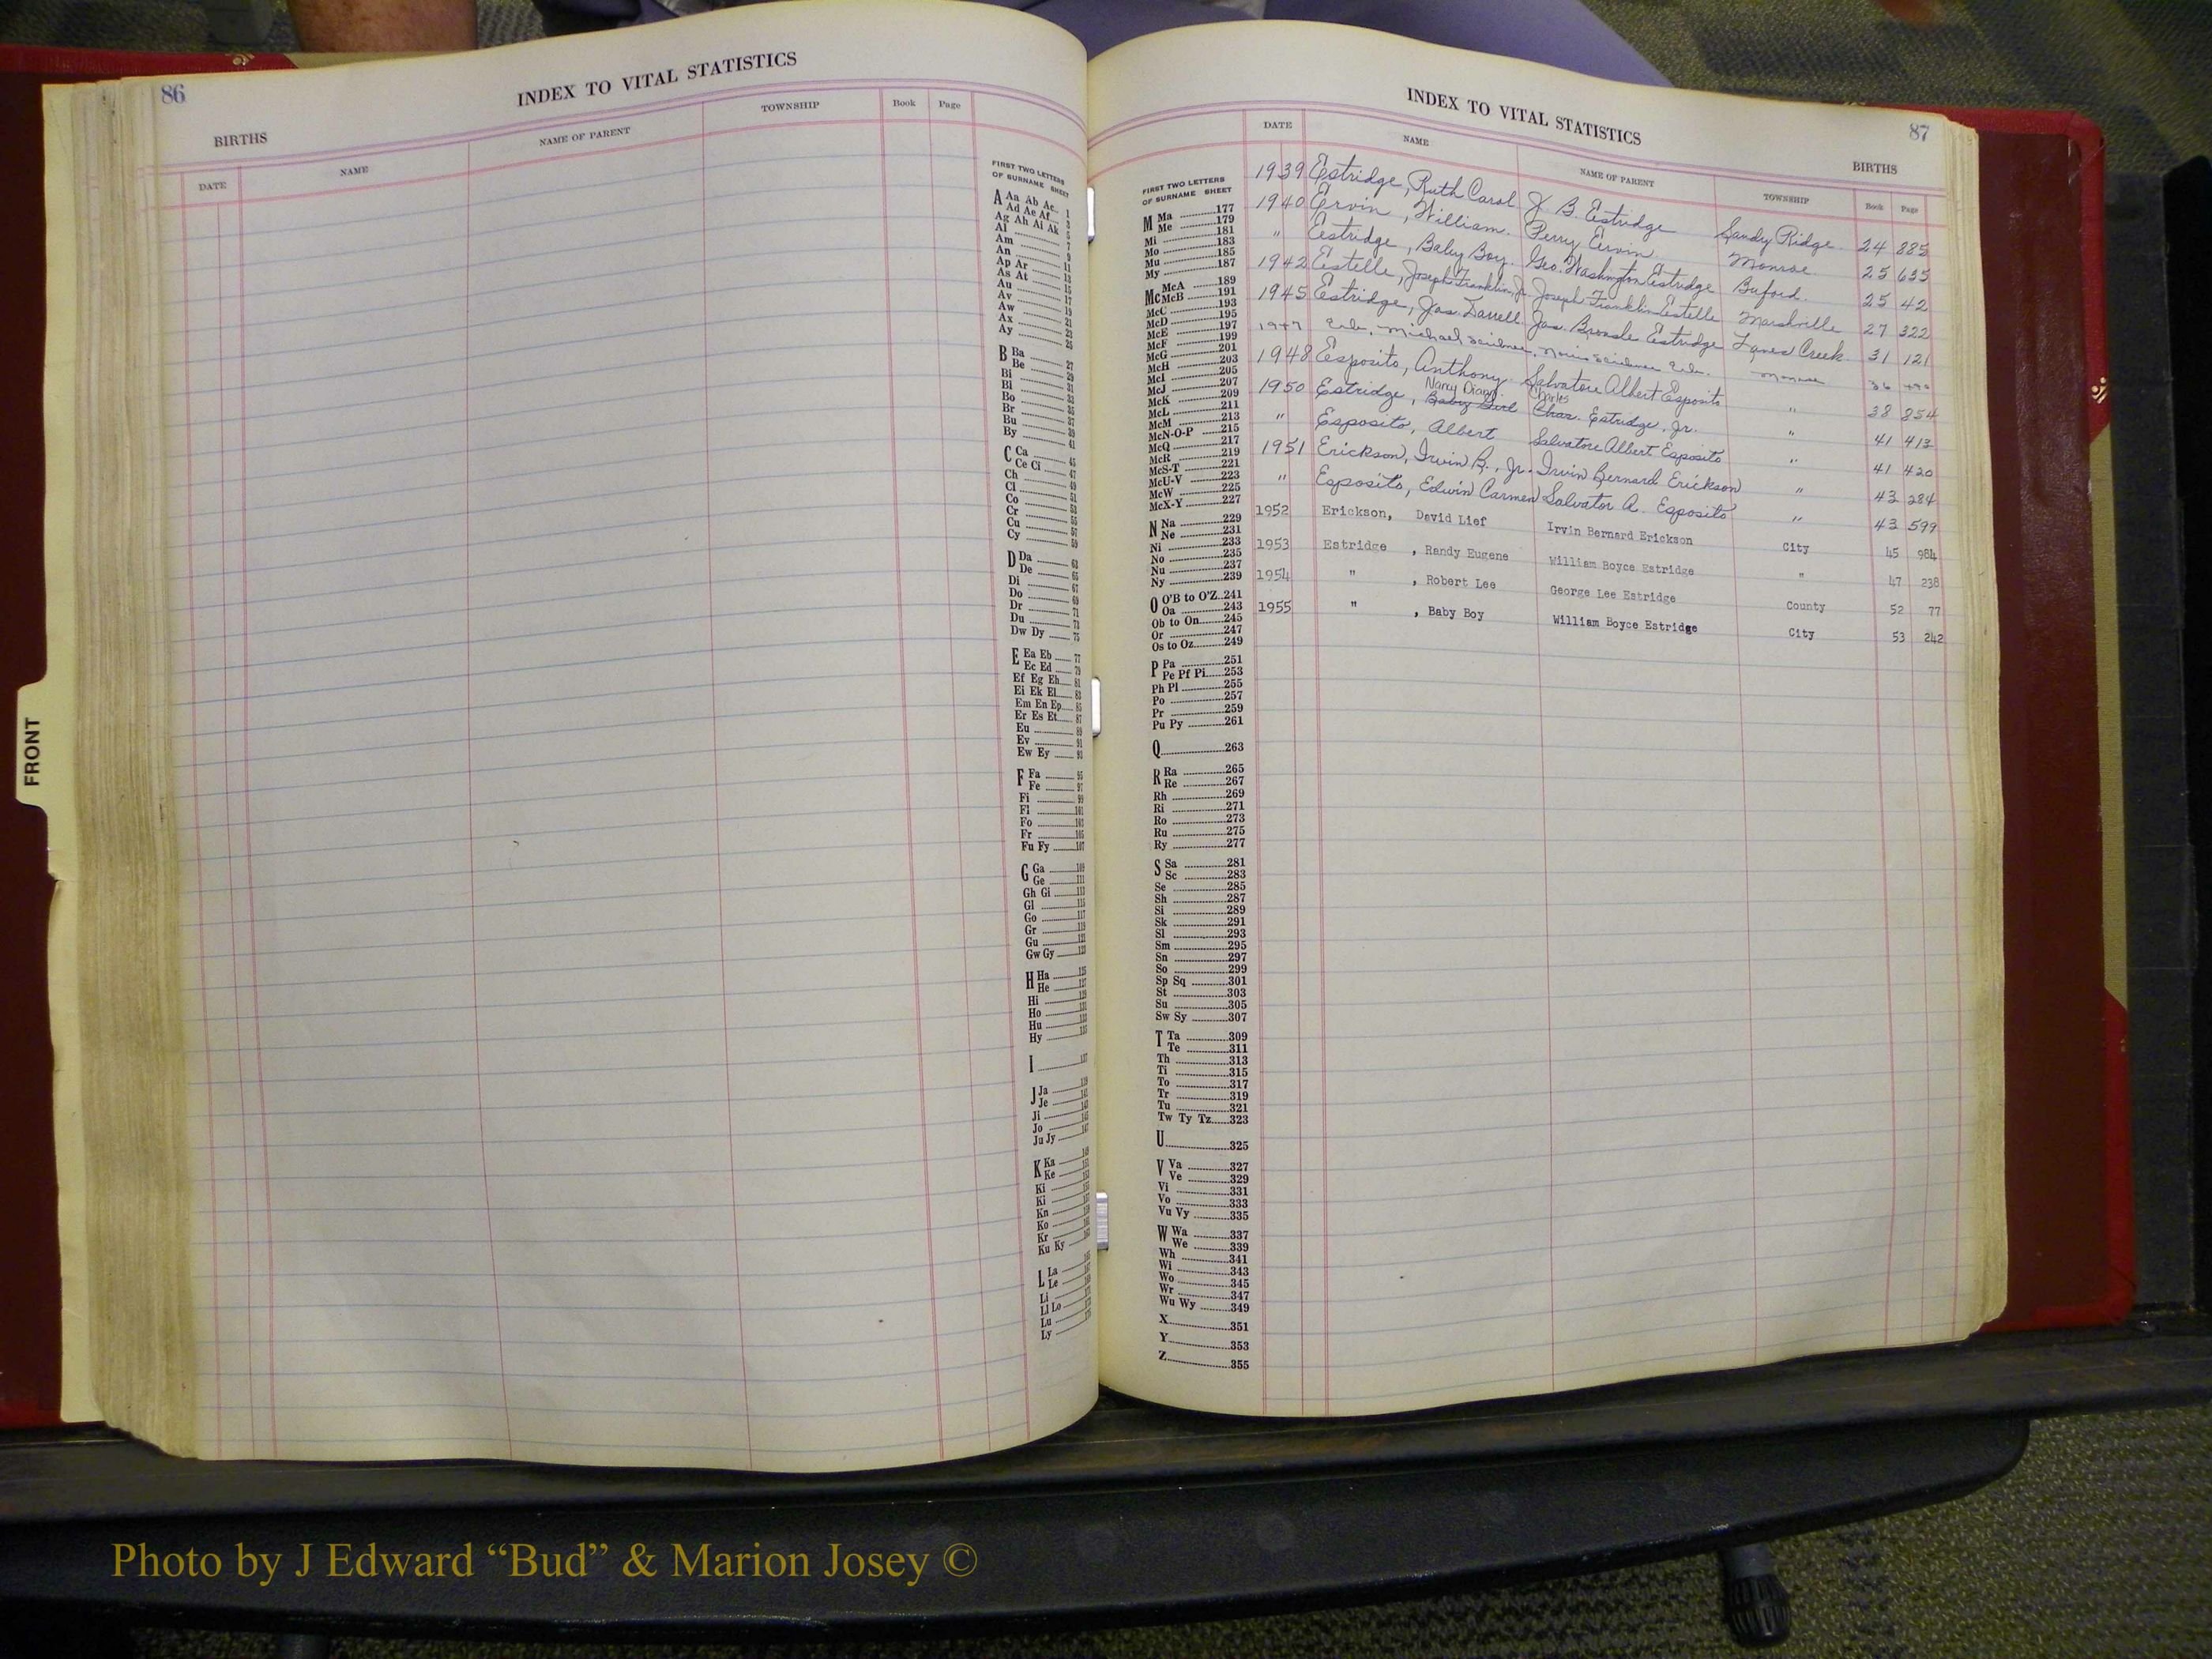 86
INDEX TO VITAL STATISTICS
BIRTHS
DATE NAME NAME OF PARENT TOWNSHIP Book Page
FIRST TWO LETTERS
OF SURNAME SHEET
A Aa Ab Ac 1
Ad Ae Af 3
Ag Ah Ai Ak 5
Al 7
Am 9
An 11
Ap Ar 13
As At 15
Au 17
Av 19
Aw 21
Ax 23
Ay 25
B Ba 27
Be 29
Bi 31
Bl 33
Bo 35
Br 37
Bu 39
By 41
C Ca 45
Ce Ci 47
Ch 49
Cl 51
Co 53
Cr 55
Cu 57
Cy 59
D Da 63
De 65
Di 67
Do 69
Dr 71
Du 73
Dw Dy 75
E Ea Eb 77
Ec Ed 79
Ef Eg Eh 81
Ei Ek El 83
Em En Ep 85
Er Es Et 87
Eu 89
Ev 91
Ew Ey 93
F Fa 95
Fe 97
Fi 99
Fl 101
Fo 103
Fr 105
Fu Fy 107
G Ga 109
Ge 111
Gh Gi 113
Gl 115
Go 117
Gr 119
Gu 121
Gw Gy 123
H Ha 125
He 127
Hi 129
Ho 131
Hu 133
Hy 135
I 137
J Ja
Je
Ji
Jo
Ju Jy
K Ka
Ke
Ki
Kl
Kn
Ko
Kr
Ku Ky
L La
Le
Li
Ll Lo
Lu
Ly
INDEX TO VITAL STATISTICS
87
BIRTHS
DATE NAME NAME OF PARENT TOWNSHIP Book Page
1939 Estridge, Ruth Carol J. B. Estridge Sandy Ridge 24 885
1940 Ervin, William Perry Ervin Monroe 25 635
" Estridge, Baby Boy Geo. Washington Estridge Buford 25 42
1942 Estelle, Joseph Franklin, Jr. Joseph Franklin Estelle Marshville 27 322
1945 Estridge, Jas. Darrell Jas. Estridge Lanes Creek 31 121
1947 Michael Monroe 36
1948 Esposito, Anthony Salvatore Albert Esposito " 38 254
Nancy Diann Charles
1950 Estridge, Baby Girl Chas. Estridge, Jr. " 41 413
" Esposito, Albert Salvatore Albert Esposito " 41 420
1951 Erickson, Irvin B., Jr. Irvin Bernard Erickson " 43 284
" Esposito, Edwin Carmen Salvator A. Esposito " 43 599
1952 Erickson, David Lief Irvin Bernard Erickson City 45 984
1953 Estridge , Randy Eugene William Boyce Estridge " 47 238
1954 " , Robert Lee George Lee Estridge County 52 77
1955 " , Baby Boy William Boyce Estridge City 53 242
FIRST TWO LETTERS
OF SURNAME SHEET
M Ma 177
Me 179
Mi 181
Mo 183
Mu 185
My 187
Mc McA 189
McB 191
McC 193
McD 195
McE 197
McF 199
McG 201
McH 203
McI 205
McJ 207
McK 209
McL 211
McM 213
McN-O-P 215
McQ 217
McR 219
McS-T 221
McU-V 223
McW 225
McX-Y 227
N Na 229
Ne 231
Ni 233
No 235
Nu 237
Ny 239
O O'B to O'Z 241
Oa 243
Ob to On 245
Or 247
Os to Oz 249
P Pa 251
Pe Pf Pi 253
Ph Pl 255
Po 257
Pr 259
Pu Py 261
Q 263
R Ra 265
Re 267
Rh 269
Ri 271
Ro 273
Ru 275
Ry 277
S Sa 281
Sc 283
Se 285
Sh 287
Si 289
Sk 291
Sl 293
Sm 295
Sn 297
So 299
Sp Sq 301
St 303
Su 305
Sw Sy 307
T Ta 309
Te 311
Th 313
Ti 315
To 317
Tr 319
Tu 321
Tw Ty Tz 323
U 325
V Va 327
Ve 329
Vi 331
Vo 333
Vu Vy 335
W Wa 337
We 339
Wh 341
Wi 343
Wo 345
Wr 347
Wu Wy 349
X 351
Y 353
Z 355
FRONT
Photo by J Edward “Bud” & Marion Josey ©